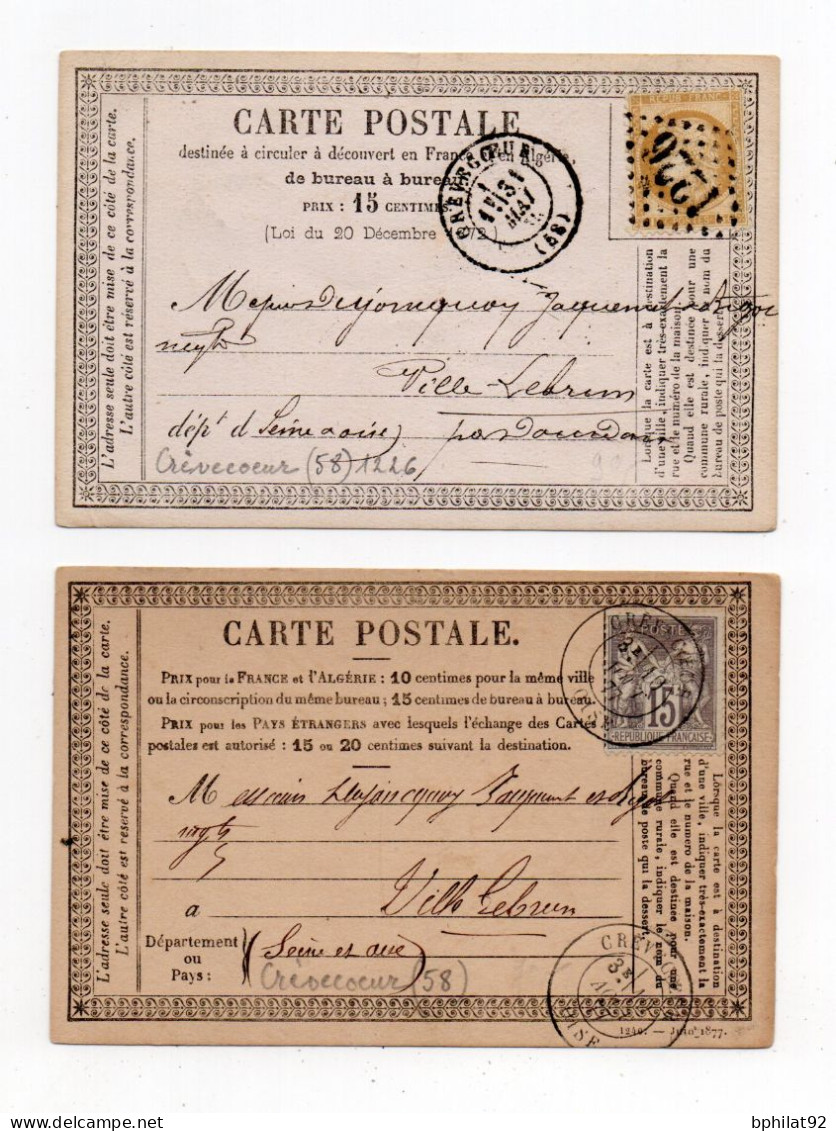 CARTE POSTALE
destinée à circuler à découvert en France et en Algérie,
de bureau à bureau
PRIX : 15 CENTIMES
(Loi du 20 Décembre 1872)
RÉPUB. FRANC.
1226
CRÈVECŒUR
31
MAI
(58)
L'adresse seule doit être mise de ce côté de la carte.
L'autre côté est réservé à la correspondance.
Ville Lebrun
dépt d Seine & oise par Dourdan
Crèvecoeur (58) 1226
Lorsque la carte est à destination
d'une ville, indiquer très-exactement la
rue et le numéro de la maison.
Quand elle est destinée pour une
commune rurale, indiquer le nom du
bureau de poste qui la dessert.
CARTE POSTALE.
PRIX pour la FRANCE et l'ALGÉRIE : 10 centimes pour la même ville
ou la circonscription du même bureau ; 15 centimes de bureau à bureau.
PRIX pour les PAYS ÉTRANGERS avec lesquels l'échange des Cartes
postales est autorisé : 15 ou 20 centimes suivant la destination.
15
RÉPUBLIQUE FRANÇAISE
L'adresse seule doit être mise de ce côté de la carte.
L'autre côté est réservé à la correspondance.
M
a Ville Lebrun
Département
ou
Pays :
Seine et oise
Crèvecoeur (58)
Lorsque la carte est à destination
d'une ville, indiquer très-exactement la
rue et le numéro de la maison.
Quand elle est destinée pour une
commune rurale, indiquer le nom du
bureau de poste qui la dessert.
OISE
1240. — Juin 1877.
bphilat92